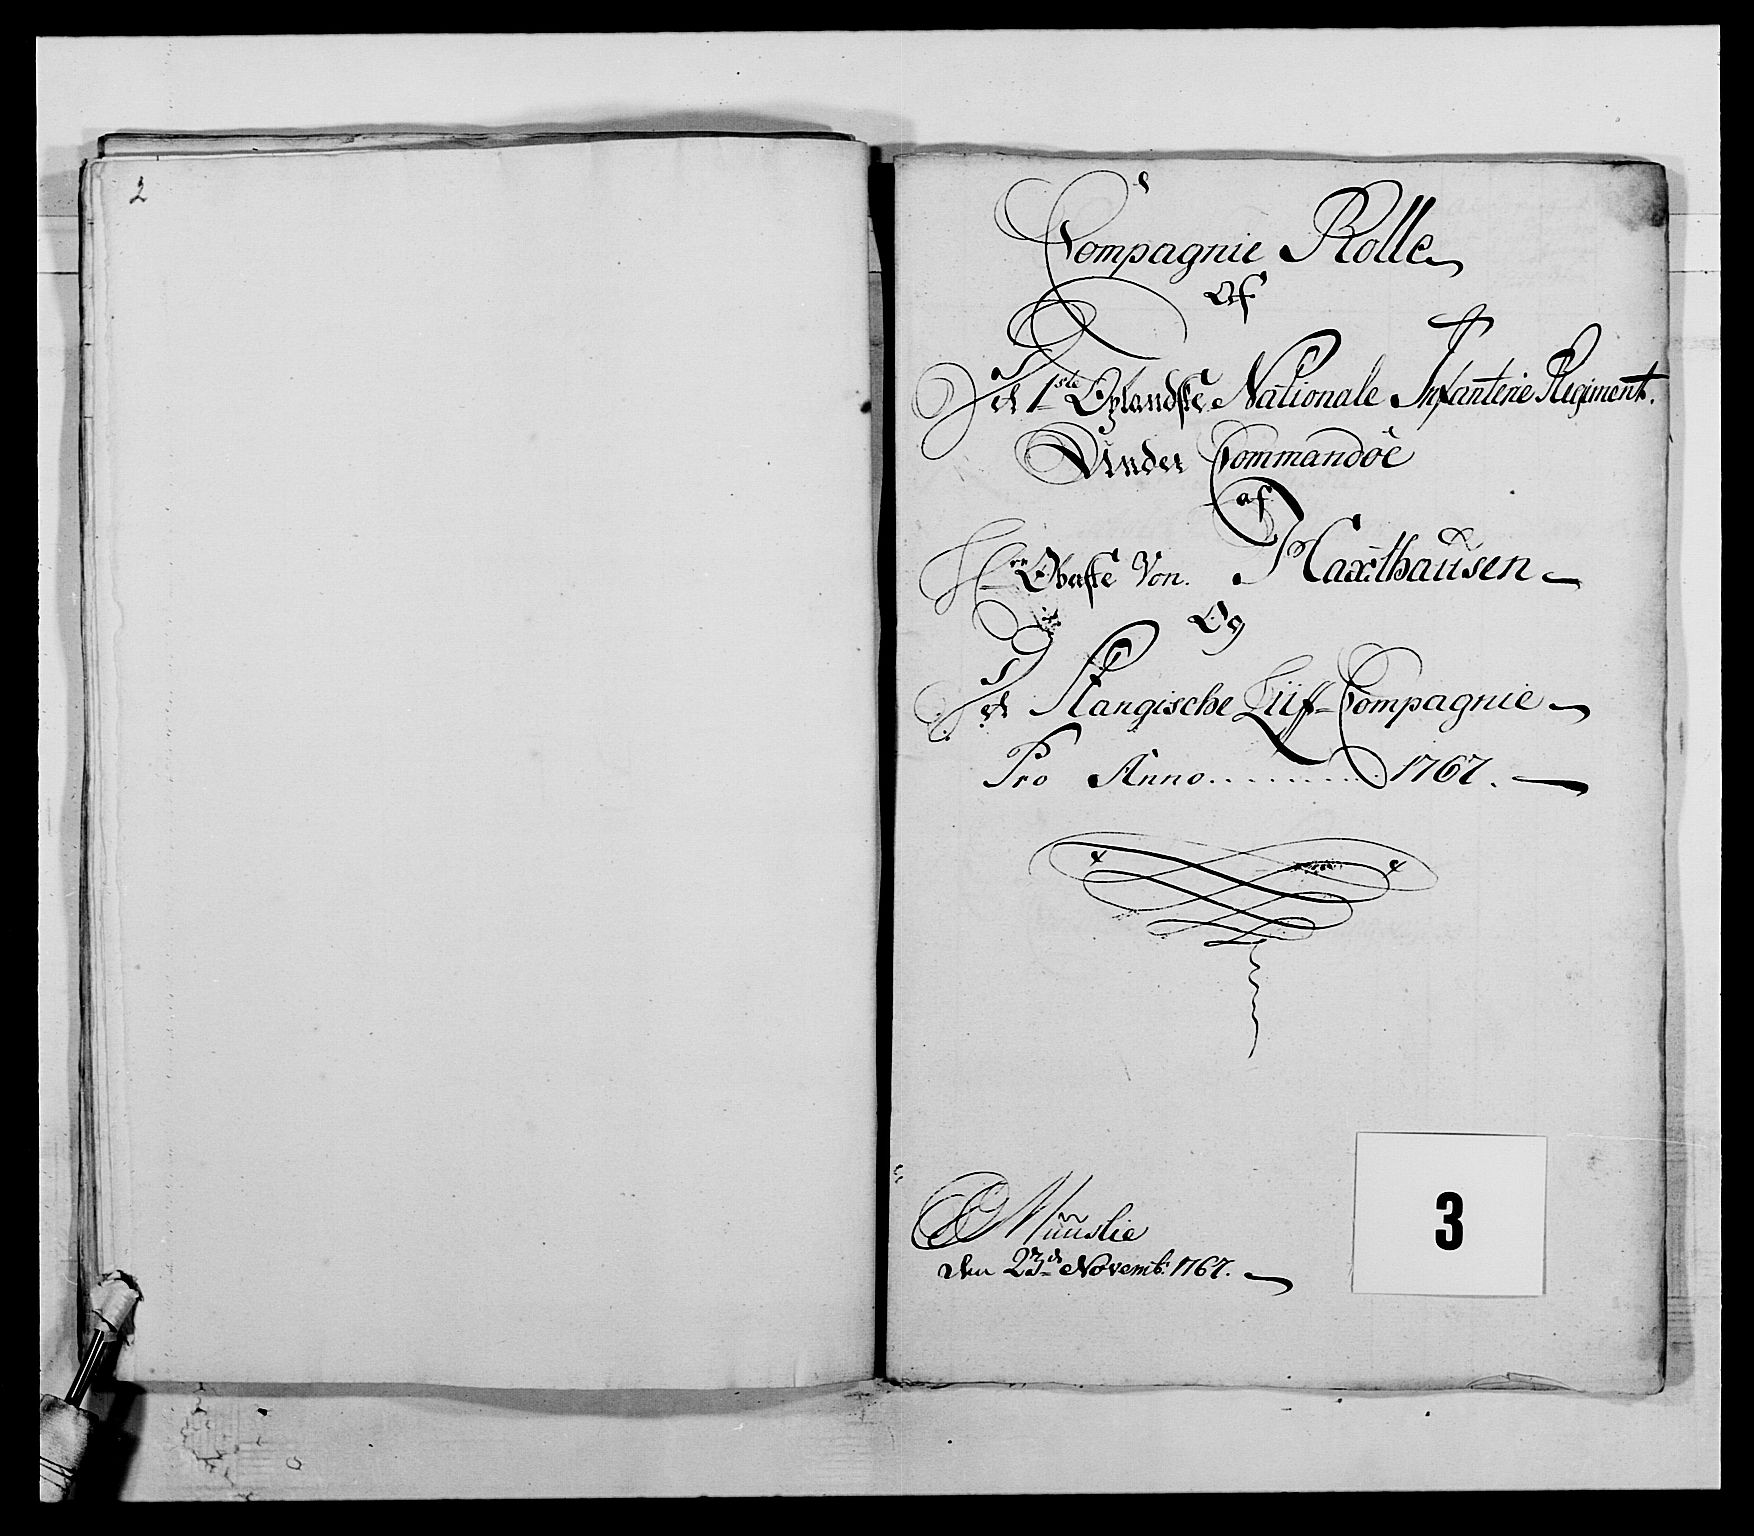 2
Compagnie Rolle
Af
Det 1ste Oplandske Nationale Infanterie Regiment.
Under Commandoe
af
Hrr Obriste Von Haxthausen
Og
Det Stangische Liif-Compagnie
Pro Anno.......... 1767.
den 23de Novemb: 1767.
3